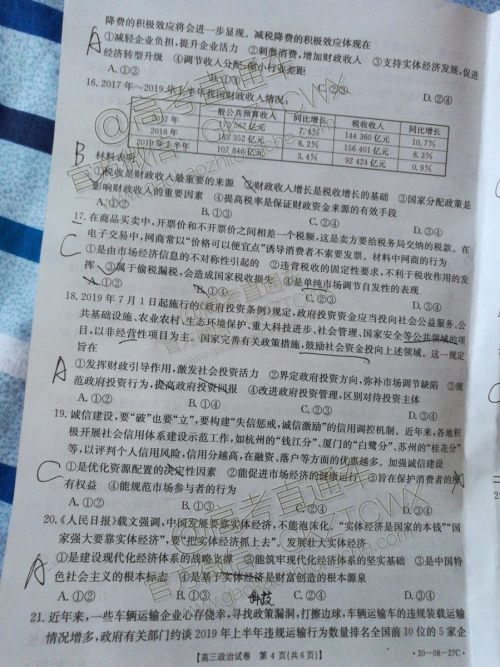 降费的积极效应将会进一步显现。减税降费的积极效应体现在
A ①减轻企业负担，提升企业活力 ②刺激消费，增加财政收入 ③支持实体经济发展，促进
经济转型升级 ④调节收入分配，缩小行业差距
A. ①③ B. ①④ C. ②③ D. ②④
16. 2017年—2019年上半年我国财政收入情况：
一般公共预算收入 同比增长 税收收入 同比增长
2017年 亿元 7.4% 144 360亿元 10.7%
2018年 183 352亿元 6.2% 156 401亿元 8.3%
2019年上半年 107 846亿元 3.4% 92 424亿元 0.9%
B 材料表明
①税收是财政收入最重要的来源 ②财政收入增长是税收增长的基础 ③国家分配政策是
影响财政收入的重要因素 ④提高税率是保证财政资金来源的有效手段
A. ①② B. ①③ C. ②④ D. ③④
17. 在商品买卖中，开票价和不开票价之间相差一个税额，这是卖方要给税务局交纳的税款。在
电子交易中，网商常以“价格可以便宜点”诱导消费者不索要发票。材料中网商的行为
C ①是由市场经济信息的不对称性引起的 ②违背税收的固定性要求，不利于税收作用的发
挥 ③属于偷税漏税，会造成国家税收损失 ④是单纯市场调节自发性的表现
A. ①② B. ①④ C. ②③ D. ③④
18. 2019年7月1日起施行的《政府投资条例》规定，政府投资资金应当投向社会公益服务、公
共基础设施、农业农村、生态环境保护、重大科技进步、社会管理、国家安全等公共领域的项
目，以非经营性项目为主。国家完善有关政策措施，鼓励社会资金投向上述领域。这一规定
旨在
A ①发挥财政引导作用，激发社会投资活力 ②界定政府投资方向，弥补市场调节缺陷 ③规
范政府投资行为，提高政府投资回报 ④改进政府投资管理，区别对待投资主体
A. ①② B. ①④ C. ②③ D. ③④
19. 诚信建设，要“破”也要“立”，要构建“失信惩戒，诚信激励”的信用调控机制。近年来，各地积
极开展社会信用体系建设示范工作，如杭州的“钱江分”、厦门的“白鹭分”、苏州的“桂花分”
等，以评判个人信用风险，信用分越高，在融资、落户等方面的优惠越多。加强诚信建设
C ①是优化资源配置的决定性因素 ②能促进市场经济的健康运行 ③旨在保护消费者的
有权益 ④能规范市场参与者的行为
A. ①② B. ①③ C. ②④ D. ③④
20. 《人民日报》载文强调，中国发展要靠实体经济，不能泡沫化。“实体经济是国家的本钱”“国
家强大要靠实体经济”，要“把实体经济抓上去”。发展壮大实体经济
A ①是建设现代化经济体系的战略支撑 ②能筑牢现代化经济体系的坚实基础 ③是中国特
色社会主义的根本标志 ④是基于实体经济是财富创造的根本源泉
科技
21. 近年来，一些车辆运输企业心存侥幸，寻找政策漏洞，打擦边球，车辆运输车的违规装载运输
情况增多，政府有关部门约谈2019年上半年违规运输行为数量排名全国前10位的5家企
高三政治试卷 第4页(共6页) ·20-08-27C·
@高考直通车